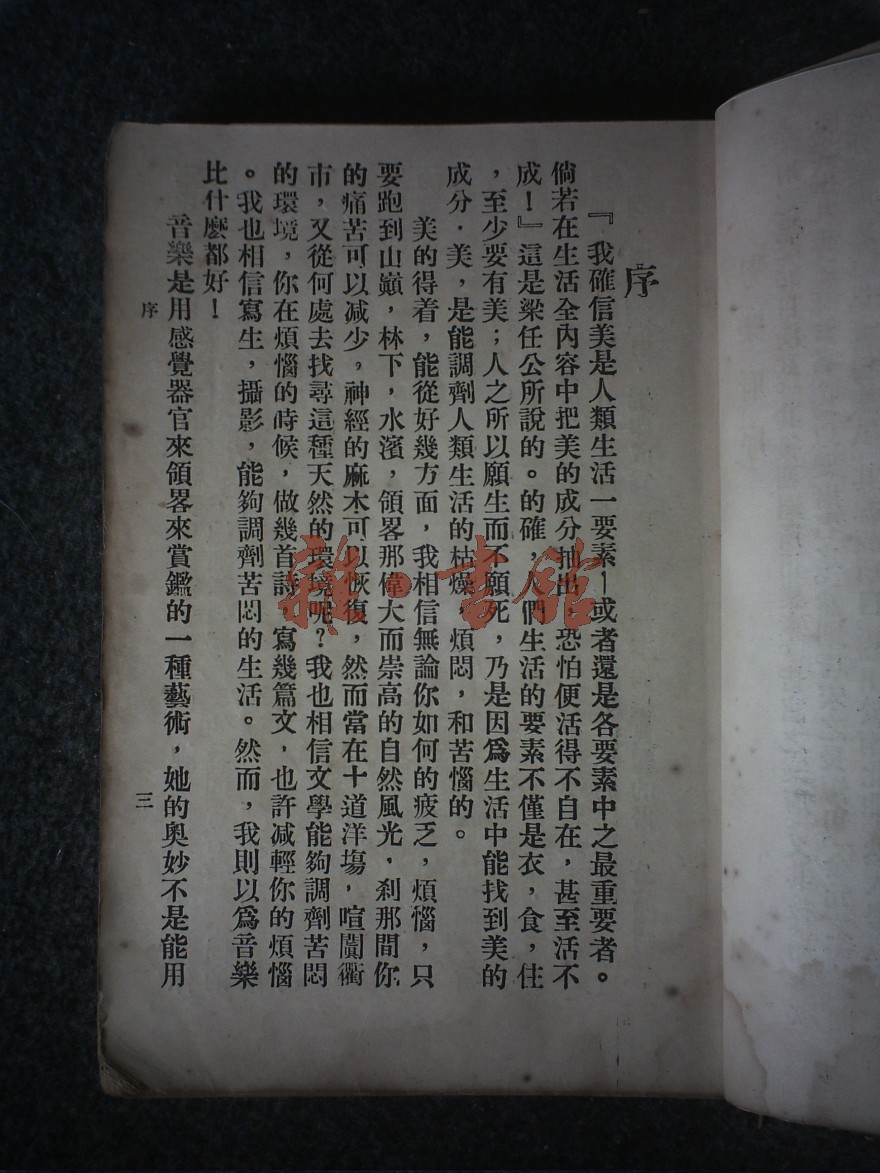 序
『我確信美是人類生活一要素－或者還是各要素中之最重要者。
倘若在生活全內容中把美的成分抽出，恐怕便活得不自在，甚至活不
成！』這是梁任公所說的。的確，人們生活的要素不僅是衣，食，住
，至少要有美；人之所以願生而不願死，乃是因爲生活中能找到美的
成分．美，是能調劑人類生活的枯燥，煩悶，和苦惱的。
美的得着，能從好幾方面，我相信無論你如何的疲乏，煩惱，只
要跑到山巔，林下，水濱，領畧那偉大而崇高的自然風光，刹那間你
的痛苦可以减少，神經的麻木可以恢復，然而當在十道洋塲，喧闐衢
市，又從何處去找尋這種天然的環境呢？我也相信文學能夠調劑苦悶
的環境，你在煩惱的時候，做幾首詩，寫幾篇文，也許减輕你的煩惱
。我也相信寫生，攝影，能夠調劑苦悶的生活。然而，我則以爲音樂
比什麽都好！
音樂是用感覺器官來領畧來賞鑑的一種藝術，她的奧妙不是能用
序
三
雜·書館